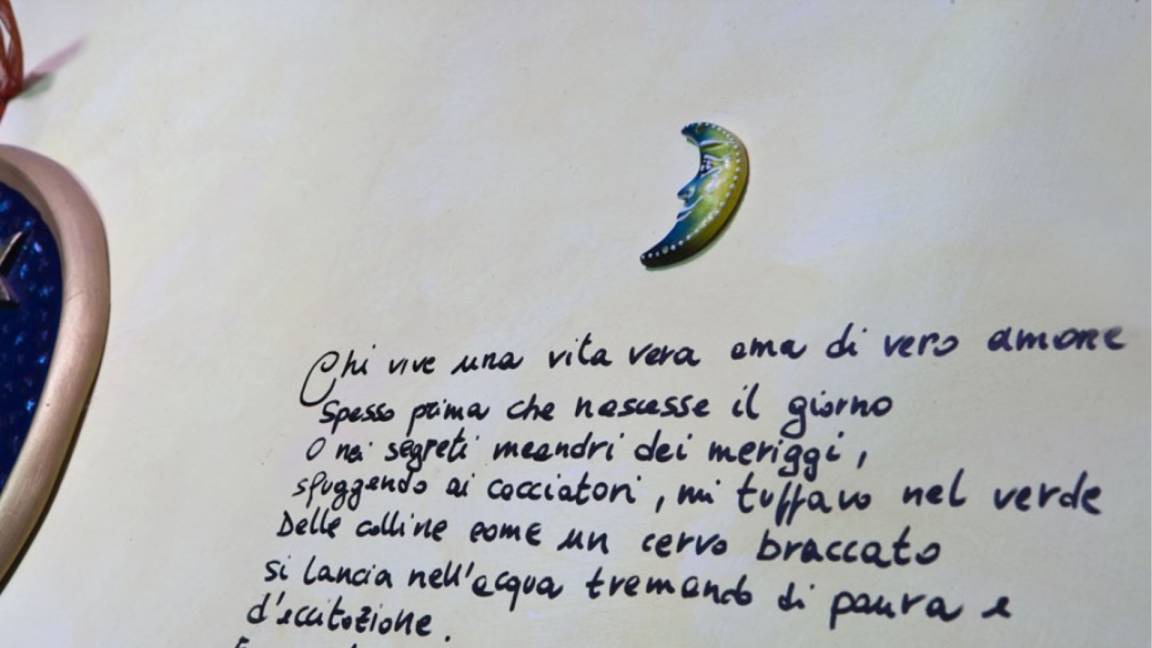 Chi vive una vita vera ama di vero amore
Spesso prima che nascesse il giorno
O nei segreti meandri dei meriggi,
sfuggendo ai cacciatori, mi tuffavo nel verde
Delle colline come un cervo braccato
si lancia nell'acqua tremando di paura e
d'eccitazione.